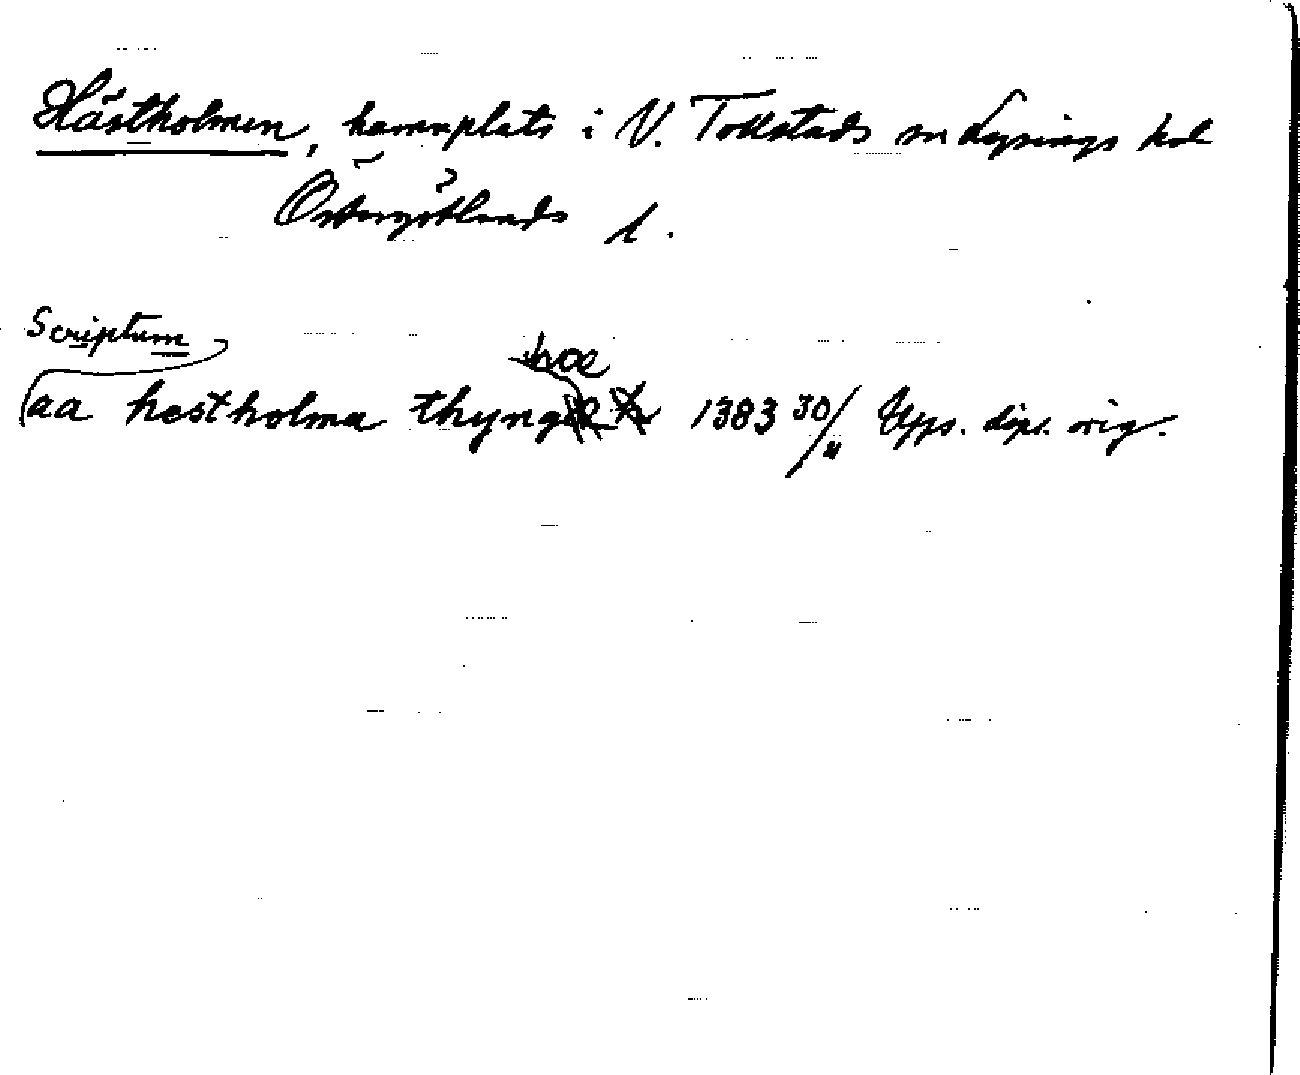 Hästholmen, hamnplats i V. Tollstads sn Lysings hd
Östergötlands l.
Scriptum
aa hestholma thyng 1383 30/11 Upps. dipl. orig.